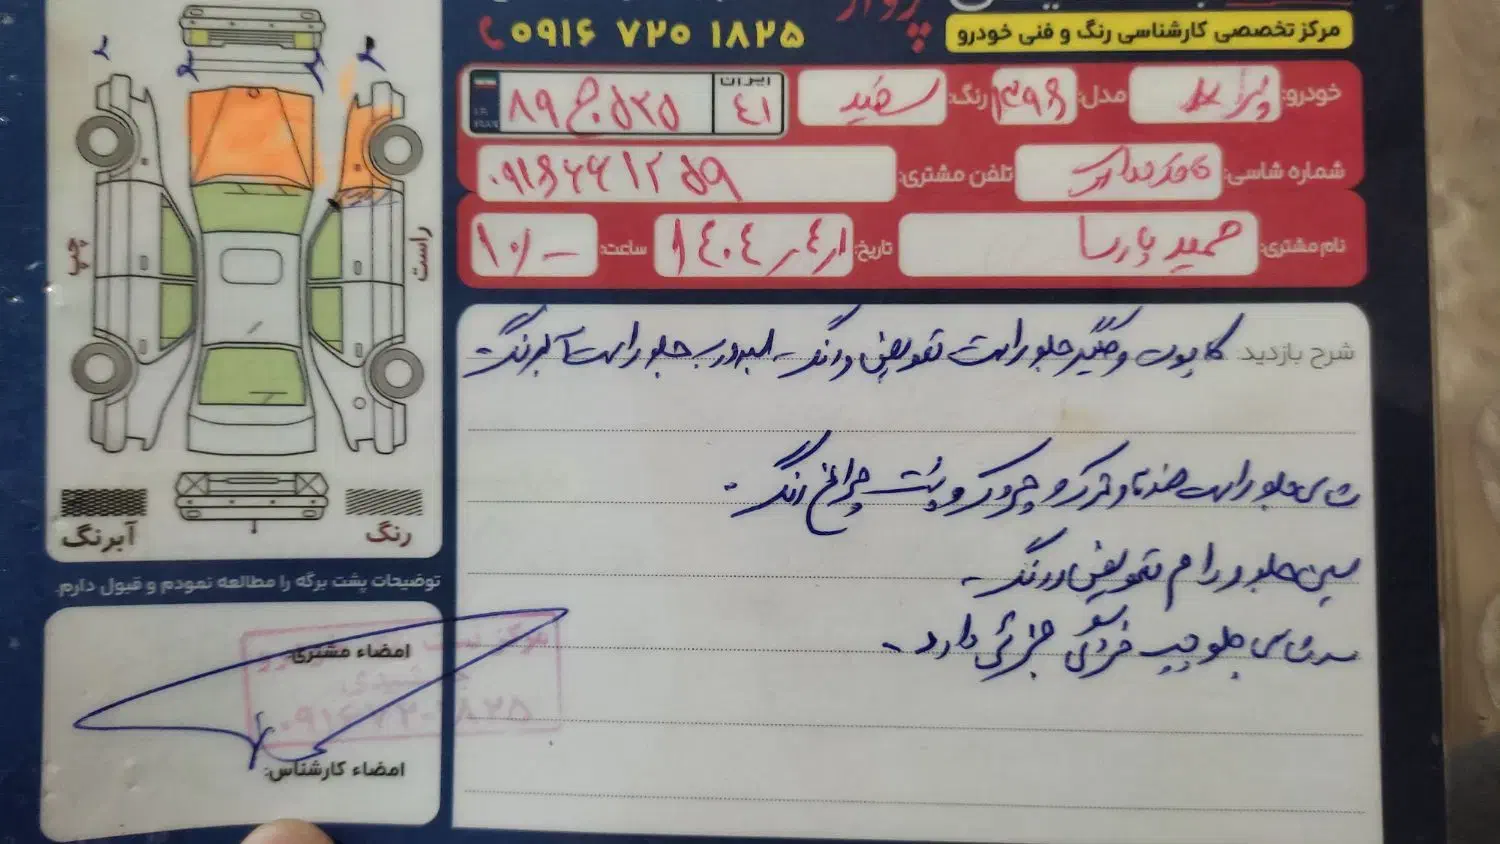 پرواز
۰۹۱۶ ۷۲۰ ۱۸۲۵
مرکز تخصصی کارشناسی رنگ و فنی خودرو
خودرو: پراید مدل: ۱۳۹۶ رنگ: سفید ایران ۴۱ ۵۲۵ ج ۸۹
شماره شاسی: تلفن مشتری: ۰۹۱۶۶۶۱۲۵۹
نام مشتری: حمید پارسا تاریخ: ۱۴۰۴٫۴٫۱ ساعت: ۱۰/-
شرح بازدید: کاپوت و گلگیر جلو راست تعویض و رنگ - درب جلو راست آبرنگ -
شاسی جلو راست و ترک و چروک و پشت چراغ رنگ .
سینی جلو و رام تعویض و رنگ -
سرشاسی جلو چپ خوردگی جزئی دارد -
چپ
راست
آبرنگ
رنگ
توضیحات پشت برگه را مطالعه نمودم و قبول دارم.
امضاء مشتری
امضاء کارشناس: